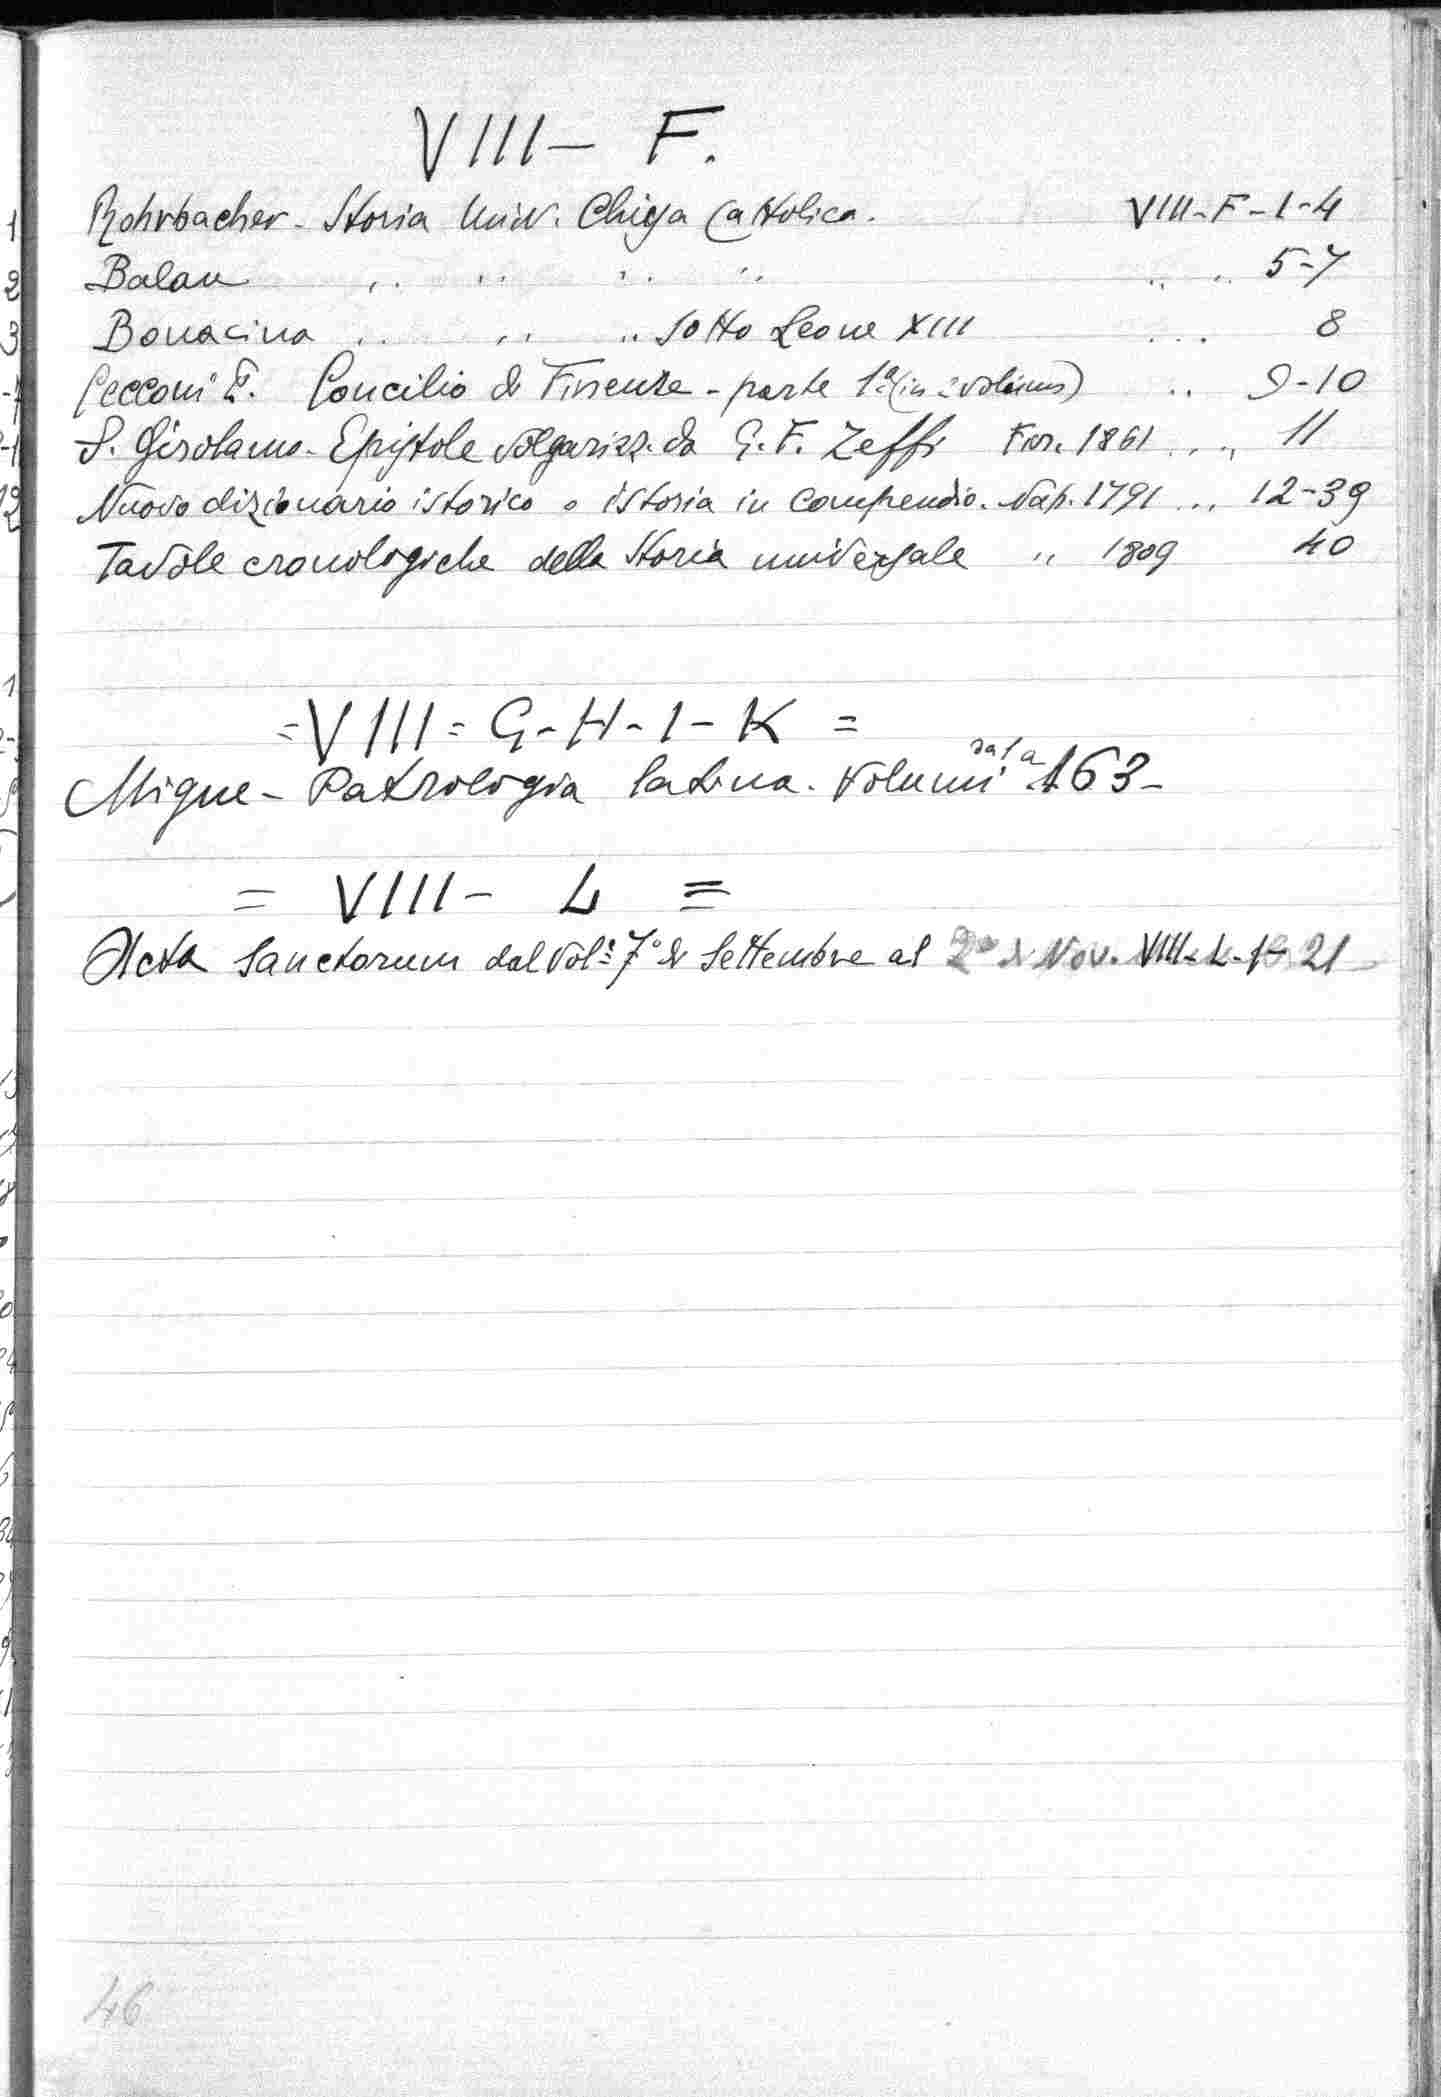 VIII - F.
Rohrbacher - Storia Univ. Chiesa Cattolica. VIII-F-1-4
Balan " " " " " " 5-7
Bonacina " " " Sotto Leone XIII " 8
Cecconi E. Concilio di Firenze - parte 1ª (in 2 volumi) " 9-10
S. Girolamo - Epistole volgarizz. da G. F. Zeffi Fir. 1861 " " 11
Nuovo dizionario istorico o istoria in compendio. Nap. 1791 " 12-39
Tavole cronologiche della Storia universale " 1809 40
= VIII = G - H - I - K =
Migne - Patrologia latina. Volumi dal a 163 -
= VIII - L =
Acta Sanctorum dal Vol: 7° di Settembre al 2° di Nov. VIII-L-1-21
46